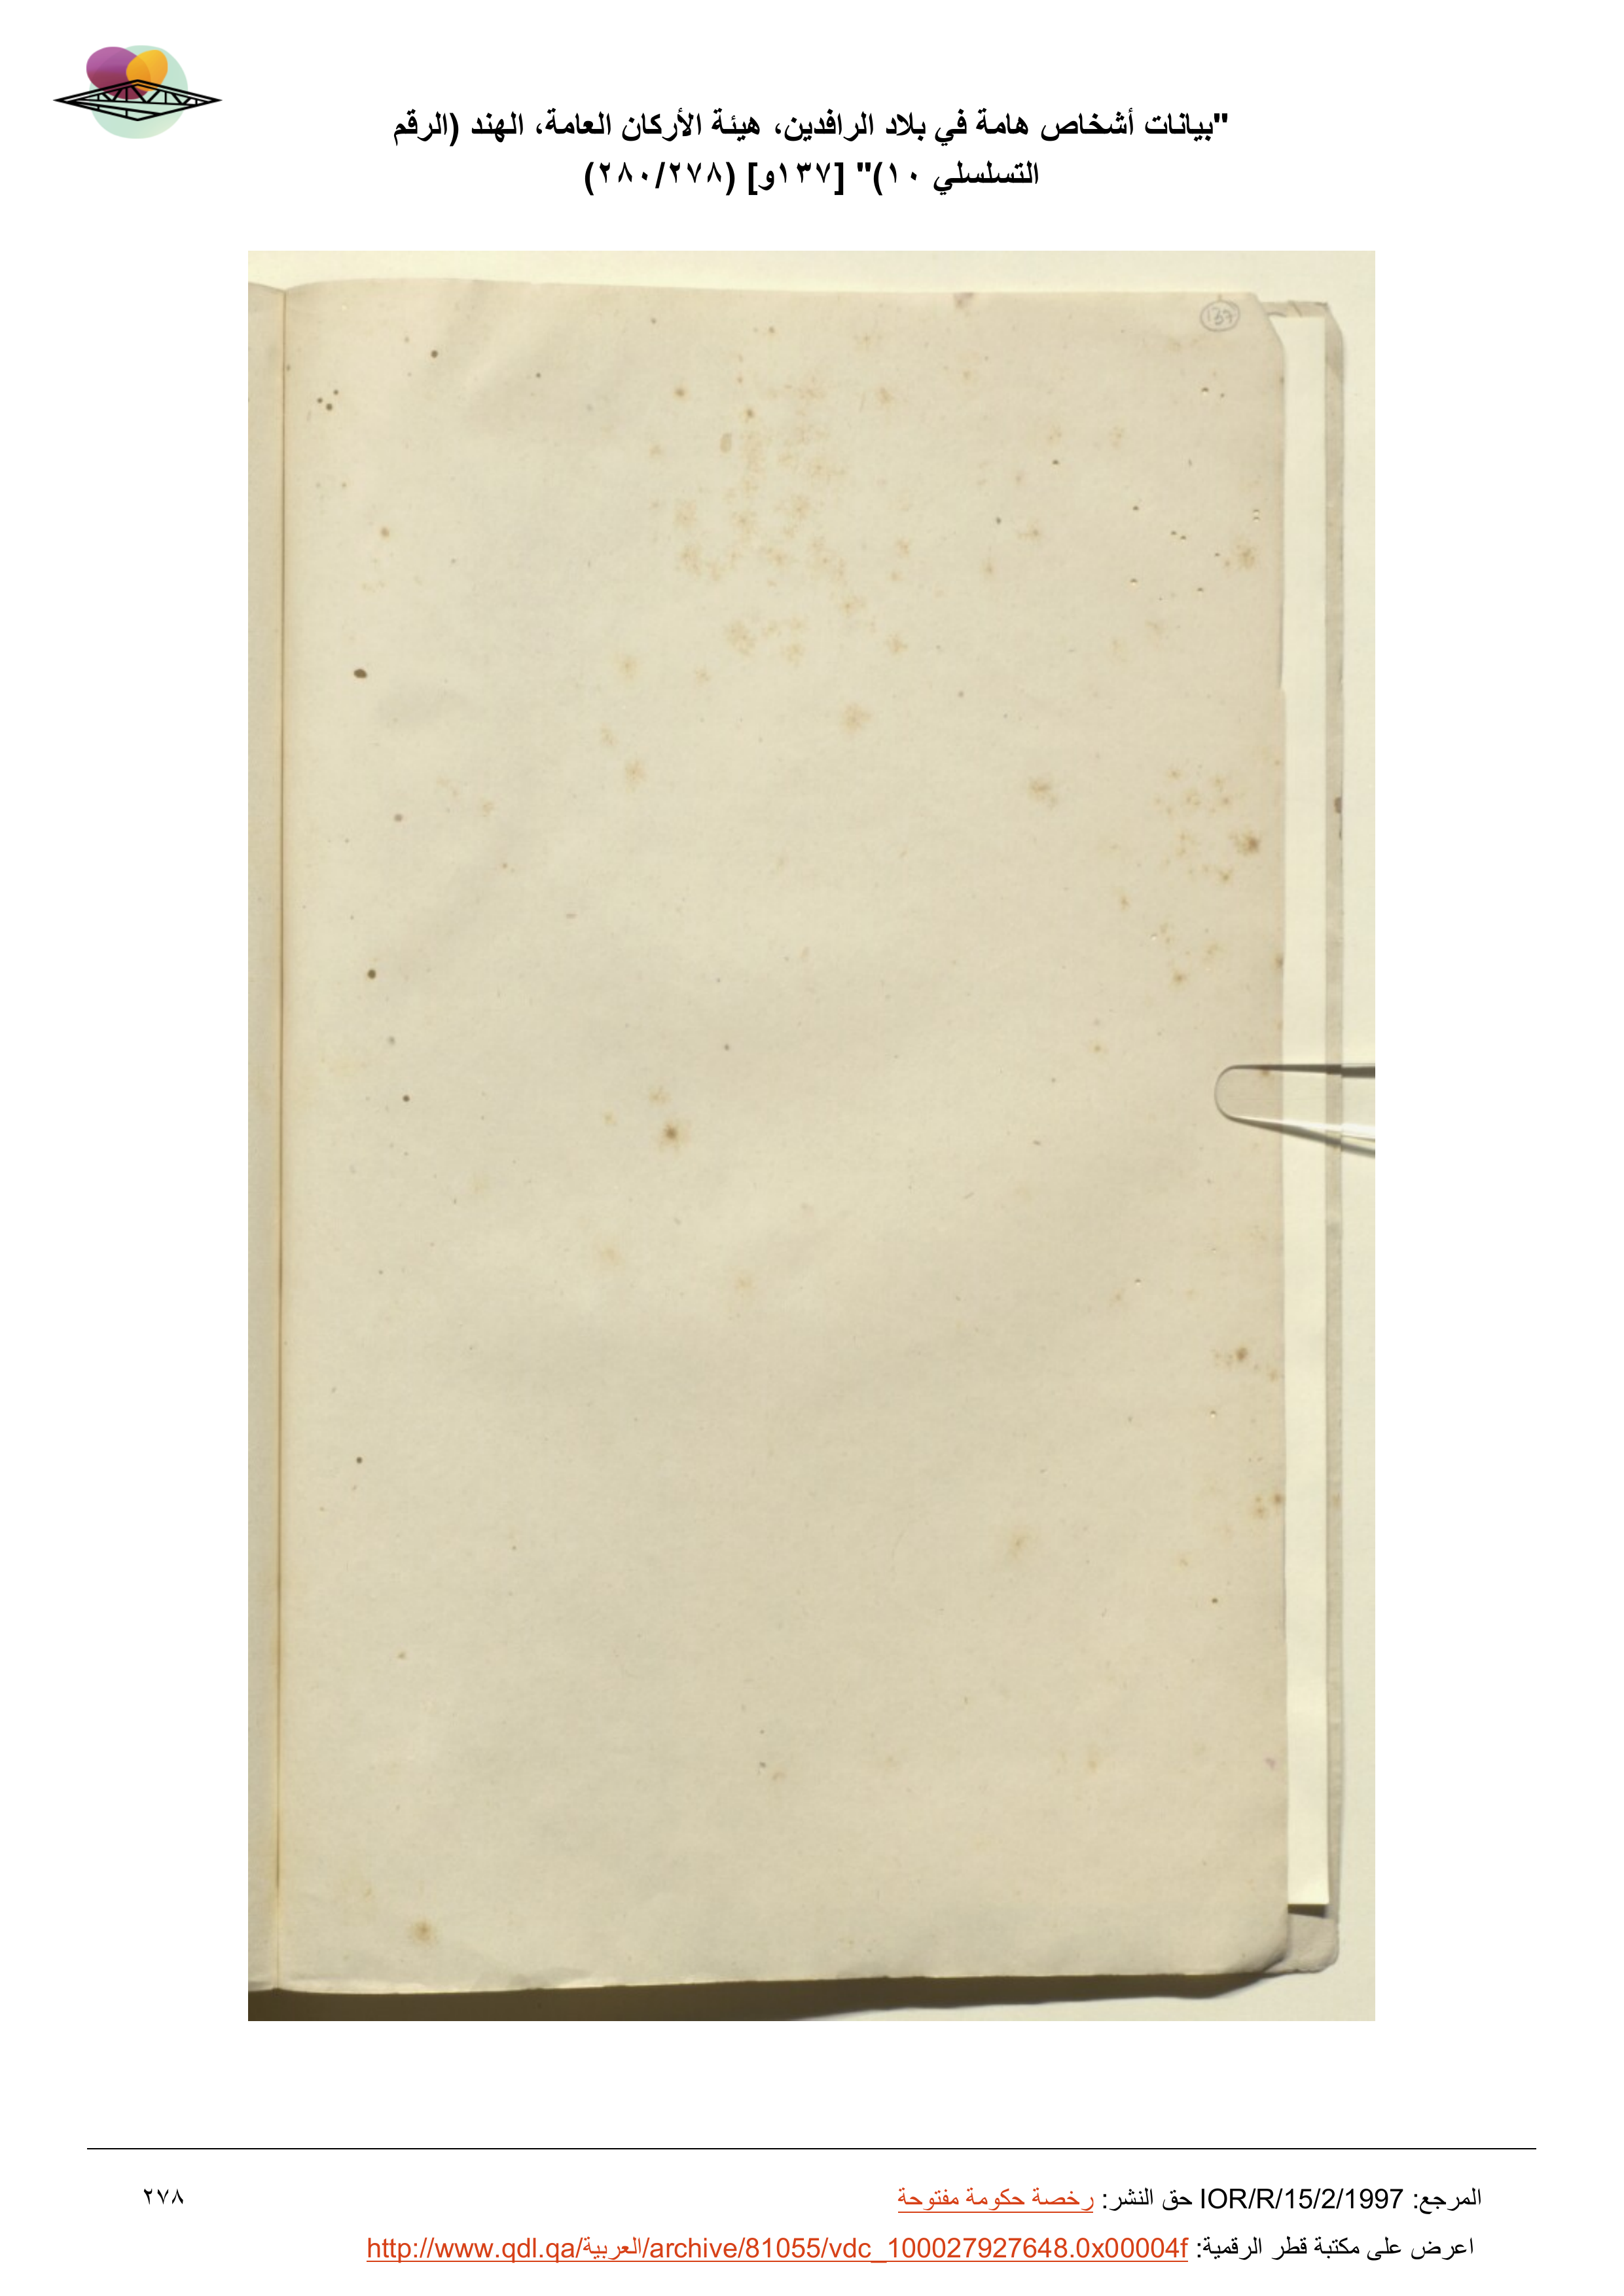 "بيانات أشخاص هامة في بلاد الرافدين، هيئة الأركان العامة، الهند (الرقم
التسلسلي ١٠)" [١٣٧و] (٢٨٠/٢٧٨)
137
المرجع: IOR/R/15/2/1997 حق النشر: رخصة حكومة مفتوحة
٢٧٨
اعرض على مكتبة قطر الرقمية: http://www.qdl.qa/العربية/archive/81055/vdc_100027927648.0x00004f